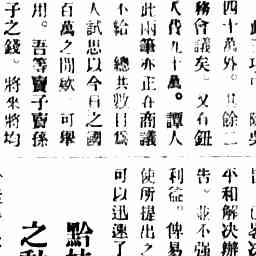 四十萬外。其餘二
務會議矣。又有鈕
人伐九十萬。譚人
此兩筆亦正在商議
不給 總共數目爲
人試思以今日之國
百萬之間歟 可舉
用。吾等賣子賣孫
子之錢。將來將均
平和解决辦
告。並不强
利益。俾易
使所提出之
可以迅速了
黔
之